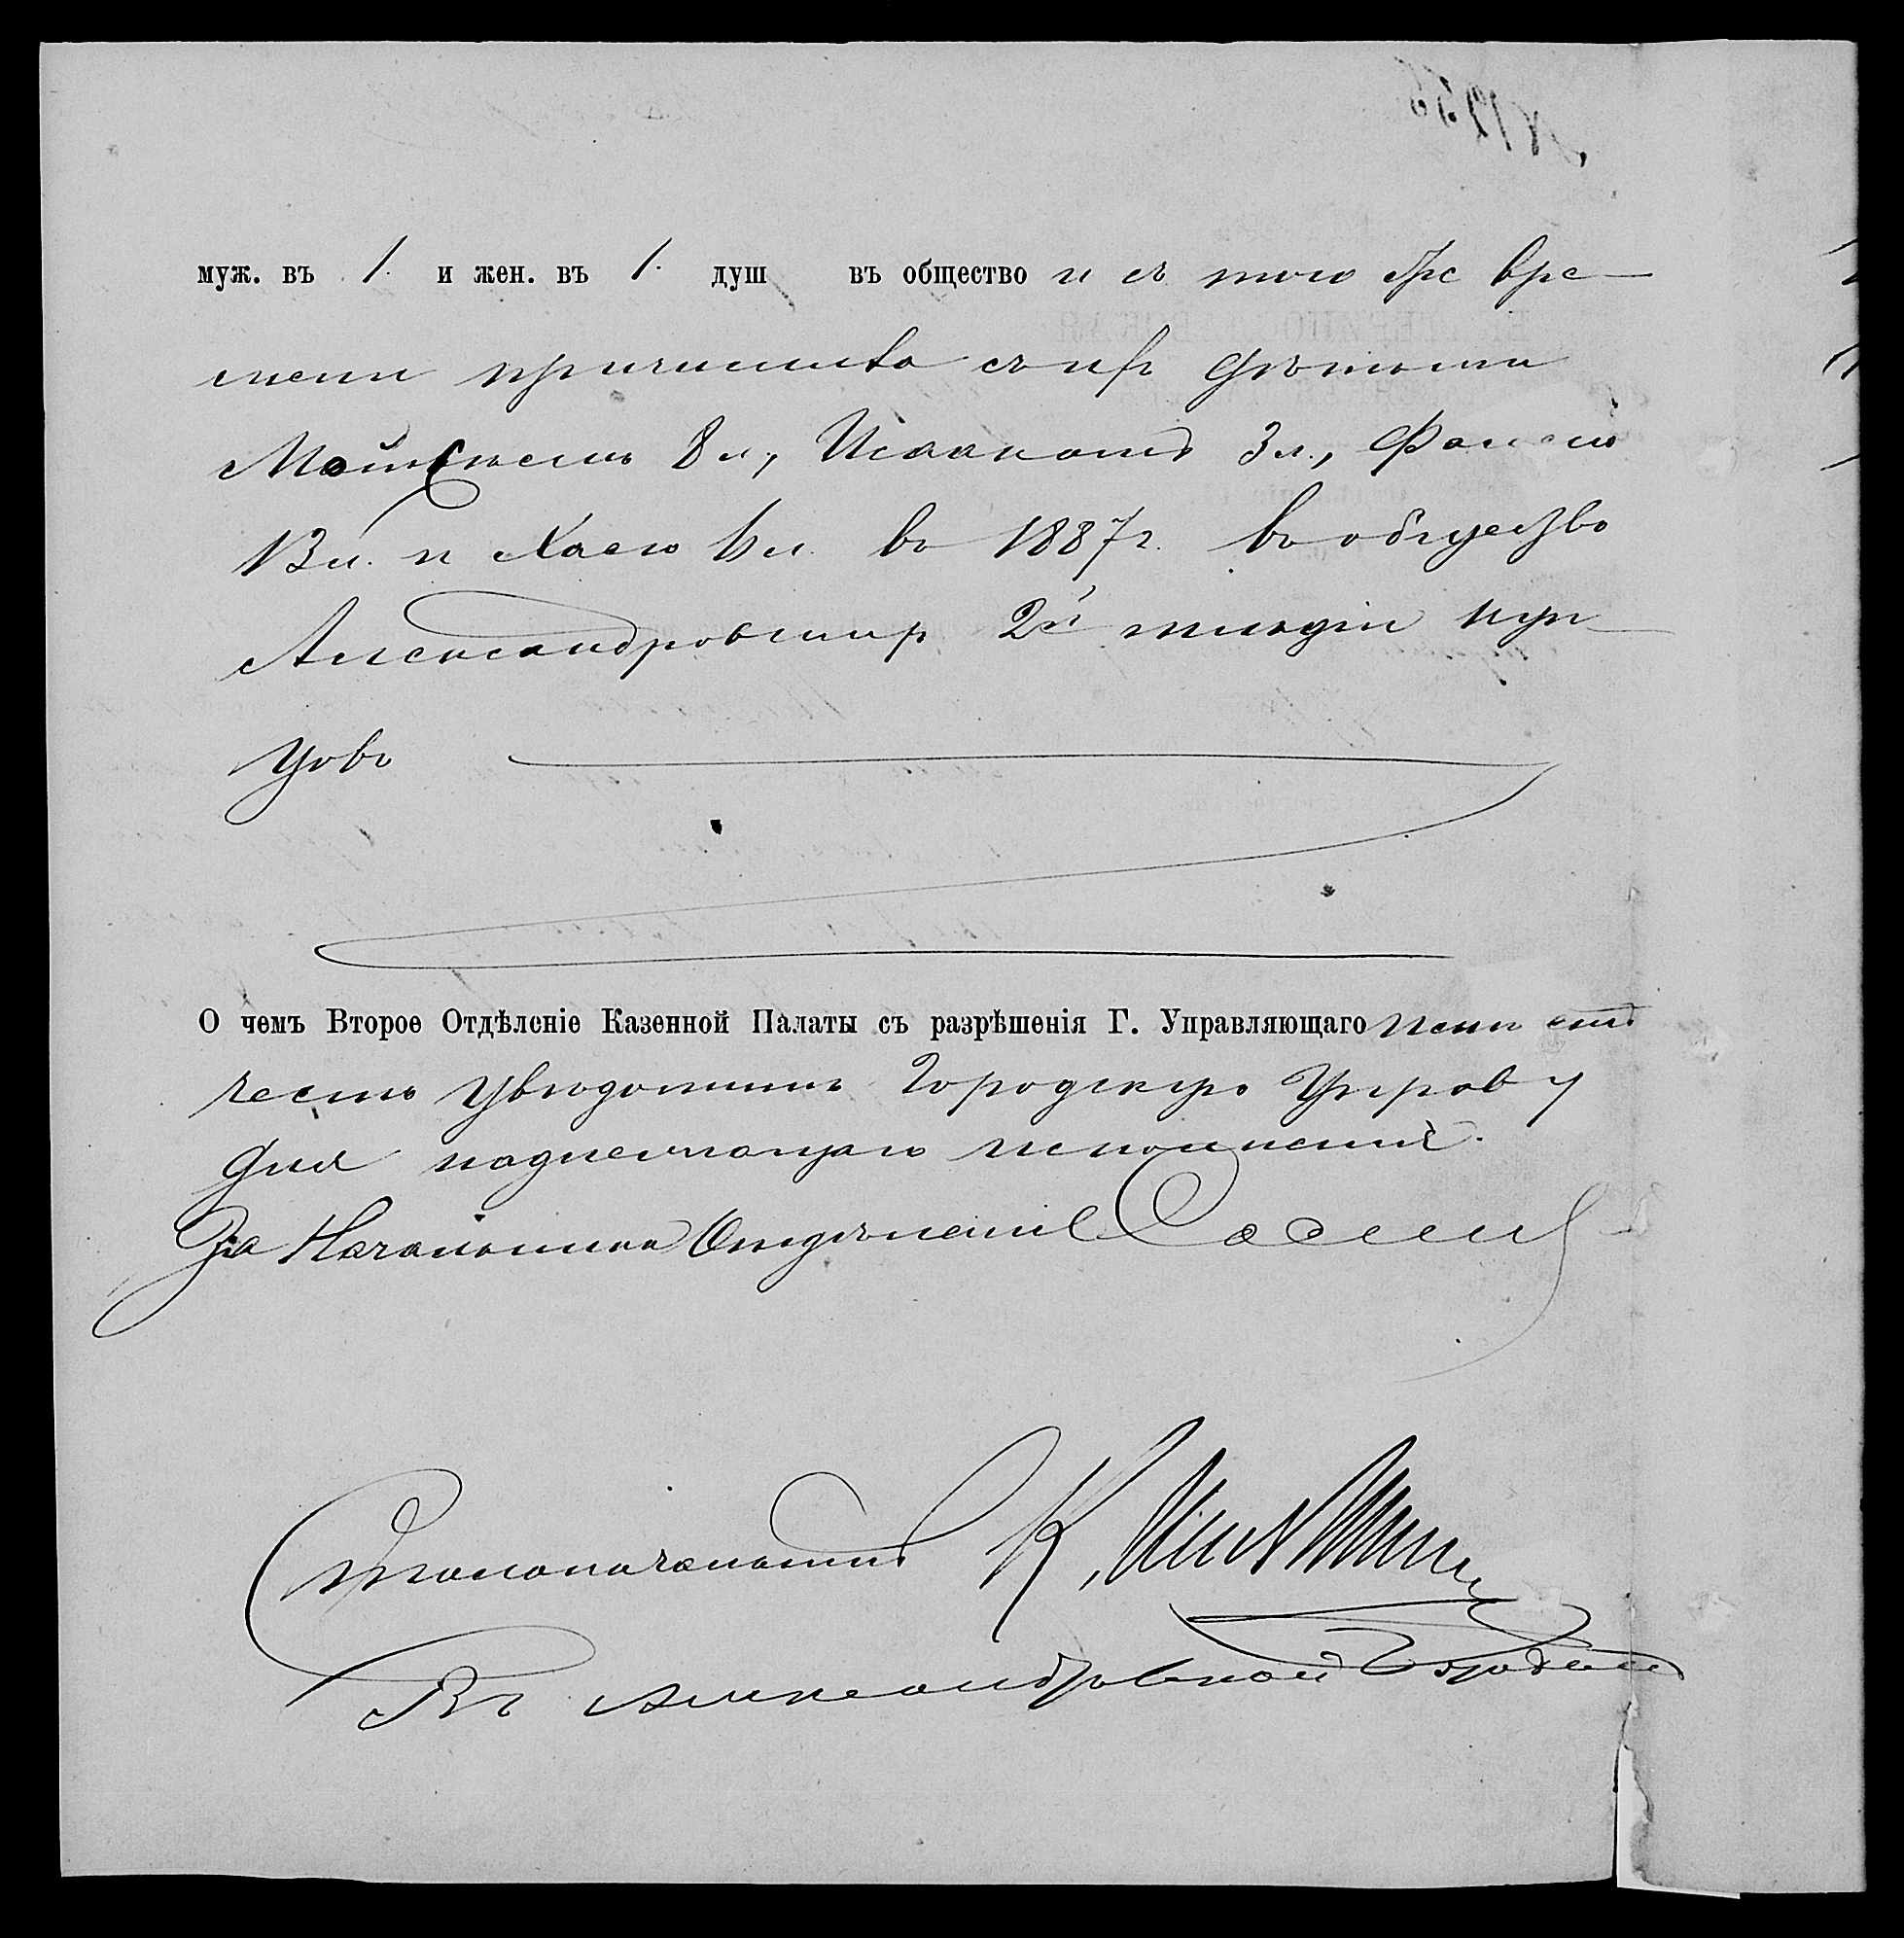 № 1256
муж. въ 1. и жен. въ 1. душ въ общество и съ того же вре-
мени причислена съ нихъ дѣтьми
8 л., Исаакомъ 3 л., Фанею
13 л. и Хаею 6 л. въ 1887 г. въ общество
Александровскихъ 2й гильдіи куп-
цовъ
О чемъ Второе Отдѣленіе Казенной Палаты съ разрѣшенія Г. Управляющаго имѣетъ
честь увѣдомить Городскую Управу
для надлежащаго исполненія.
За Начальника Отдѣленія
Столоначальникъ К.
Въ Александровской Городск